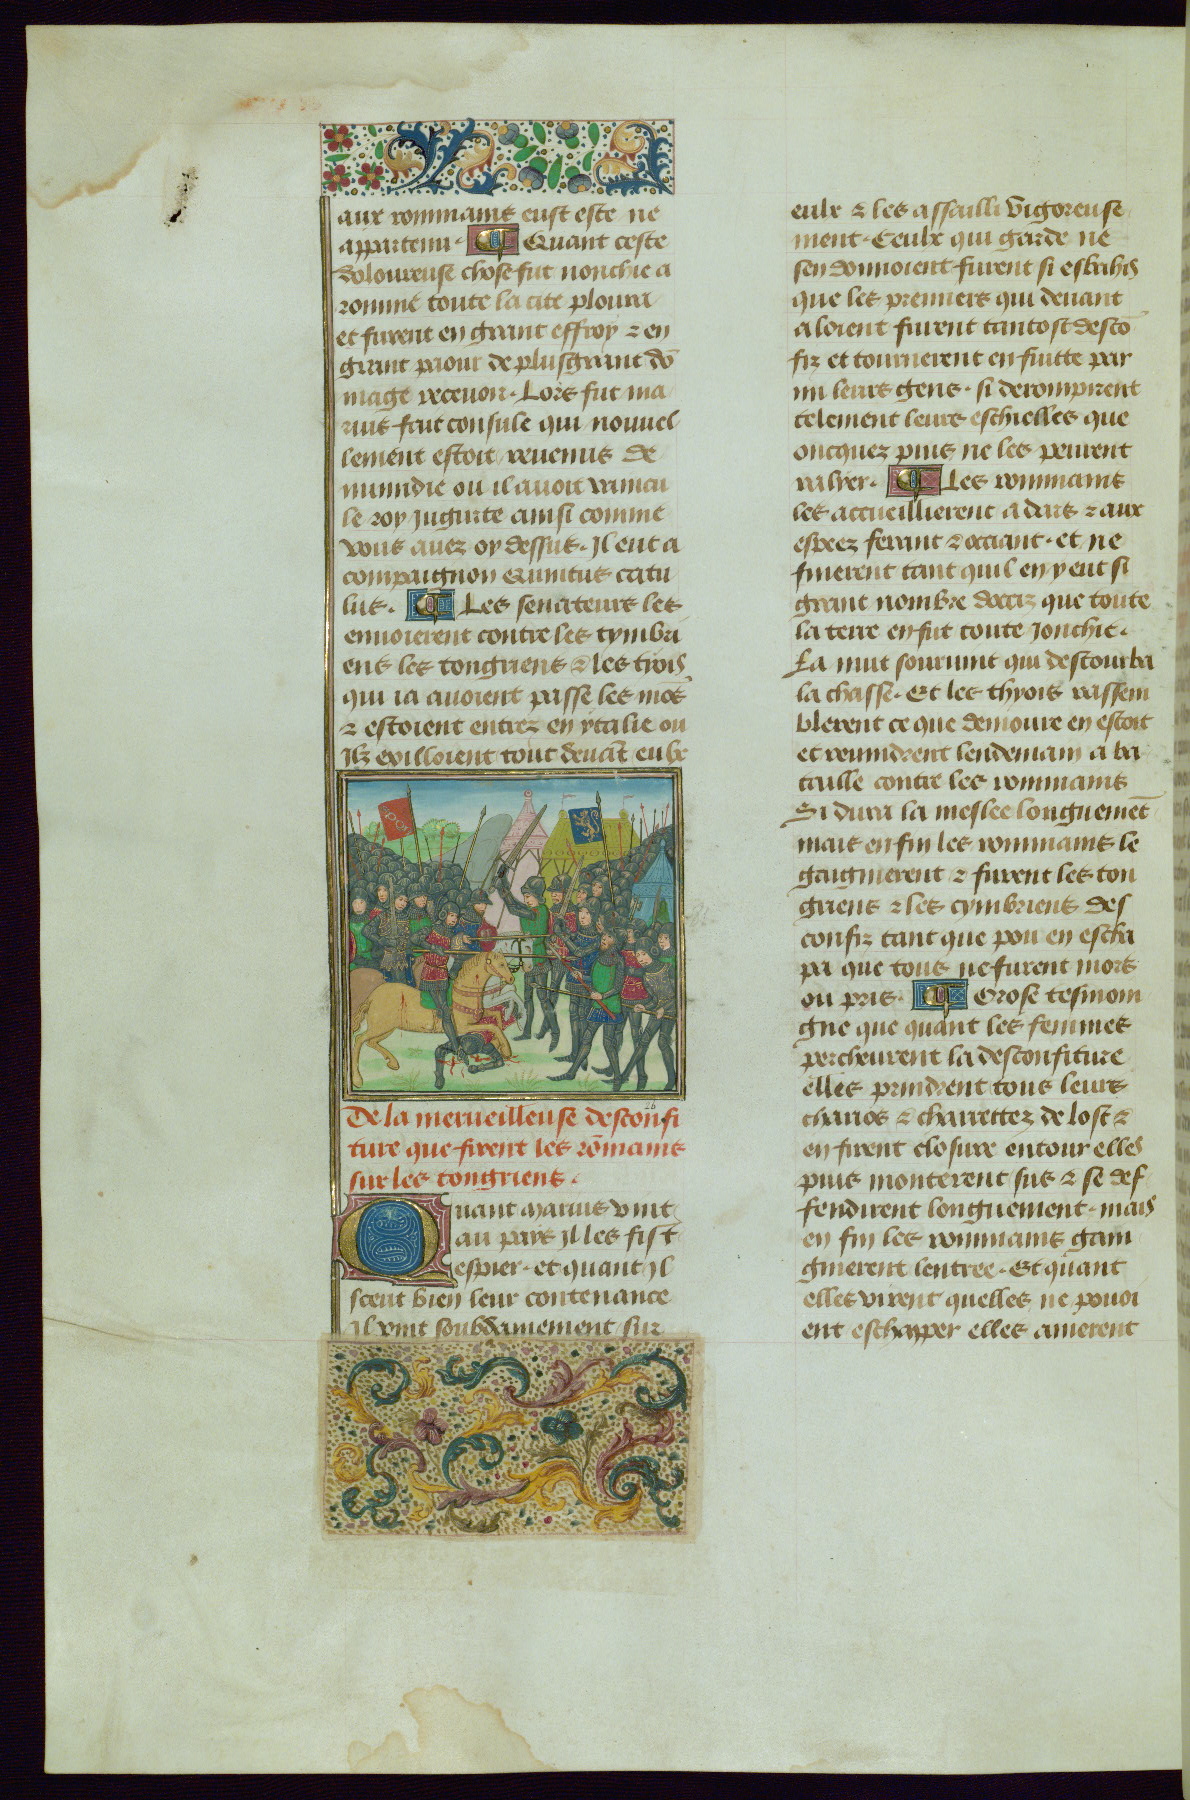 aux rommains eust este ne
appartenu. Quant ceste
doloureuse chose fut nonchie a
romme toute la cite ploura
et furent en grant effroy ⁊ en
grant paour de plus grant dō
mage recevoir. Lors fut ma
rius fait consule qui nouuel
lement estoit reuenus de
numidie ou il auoit vaincu
le roy jugurte ainsi comme
vous auez oy dessus. Il eut a
compaignon Quintus catu
lus. Les senateurs les
enuoierent contre les tymbri
ens les tongriens ⁊ les tyois
qui ia auoient passe les mōs
⁊ estoient entrez en ytalie ou
Ilz exilloient tout deuāt eulx
De la merueilleuse desconfi
ture que firent les rōmains
sur les tongriens.
Quant Marius vint
au pays il les fist
espier. et quant il
sceut bien leur contenance
il vint soubdainement sur
eulx ⁊ les assailli vigoreuse
ment. Ceulx qui garde ne
sen donnoient furent si esbahis
que les premiers qui deuant
aloient furent tantost desco
fiz et tournerent en fuitte par
mi leurs gens. si derompirent
telement leurs eschielles que
oncquez puis ne les peurent
ralyer. Les rommains
les accueillierent a dars ⁊ aux
espeez ferant ⁊ occiant. et ne
finerent tant quil en y eut si
grant nombre docciz que toute
la terre en fut toute Jonchie.
La nuit souruint qui destourba
la chasse. Et les thyois rassem
blerent ce que demoure en estoit
et reuindrent lendemain a ba
taille contre les rommains
Si dura la meslee longuemēt
mais en fin les rommains le
gaignierent ⁊ furent les ton
griens ⁊ les cymbriens des
confiz tant que pou en escha
pa que tous ne furent mors
ou pris. Orose tesmoin
gne que quant les femmes
percheurent la desconfiture
elles prindrent tous leurs
charios ⁊ charrettez de lost ⁊
en firent closure entour elles
puis monterent sus ⁊ se def
fendirent longuement. mais
en fin les rommains gain
gnierent lentree. Et quant
elles virent quelles ne pouoi
ent eschapper elles amerent